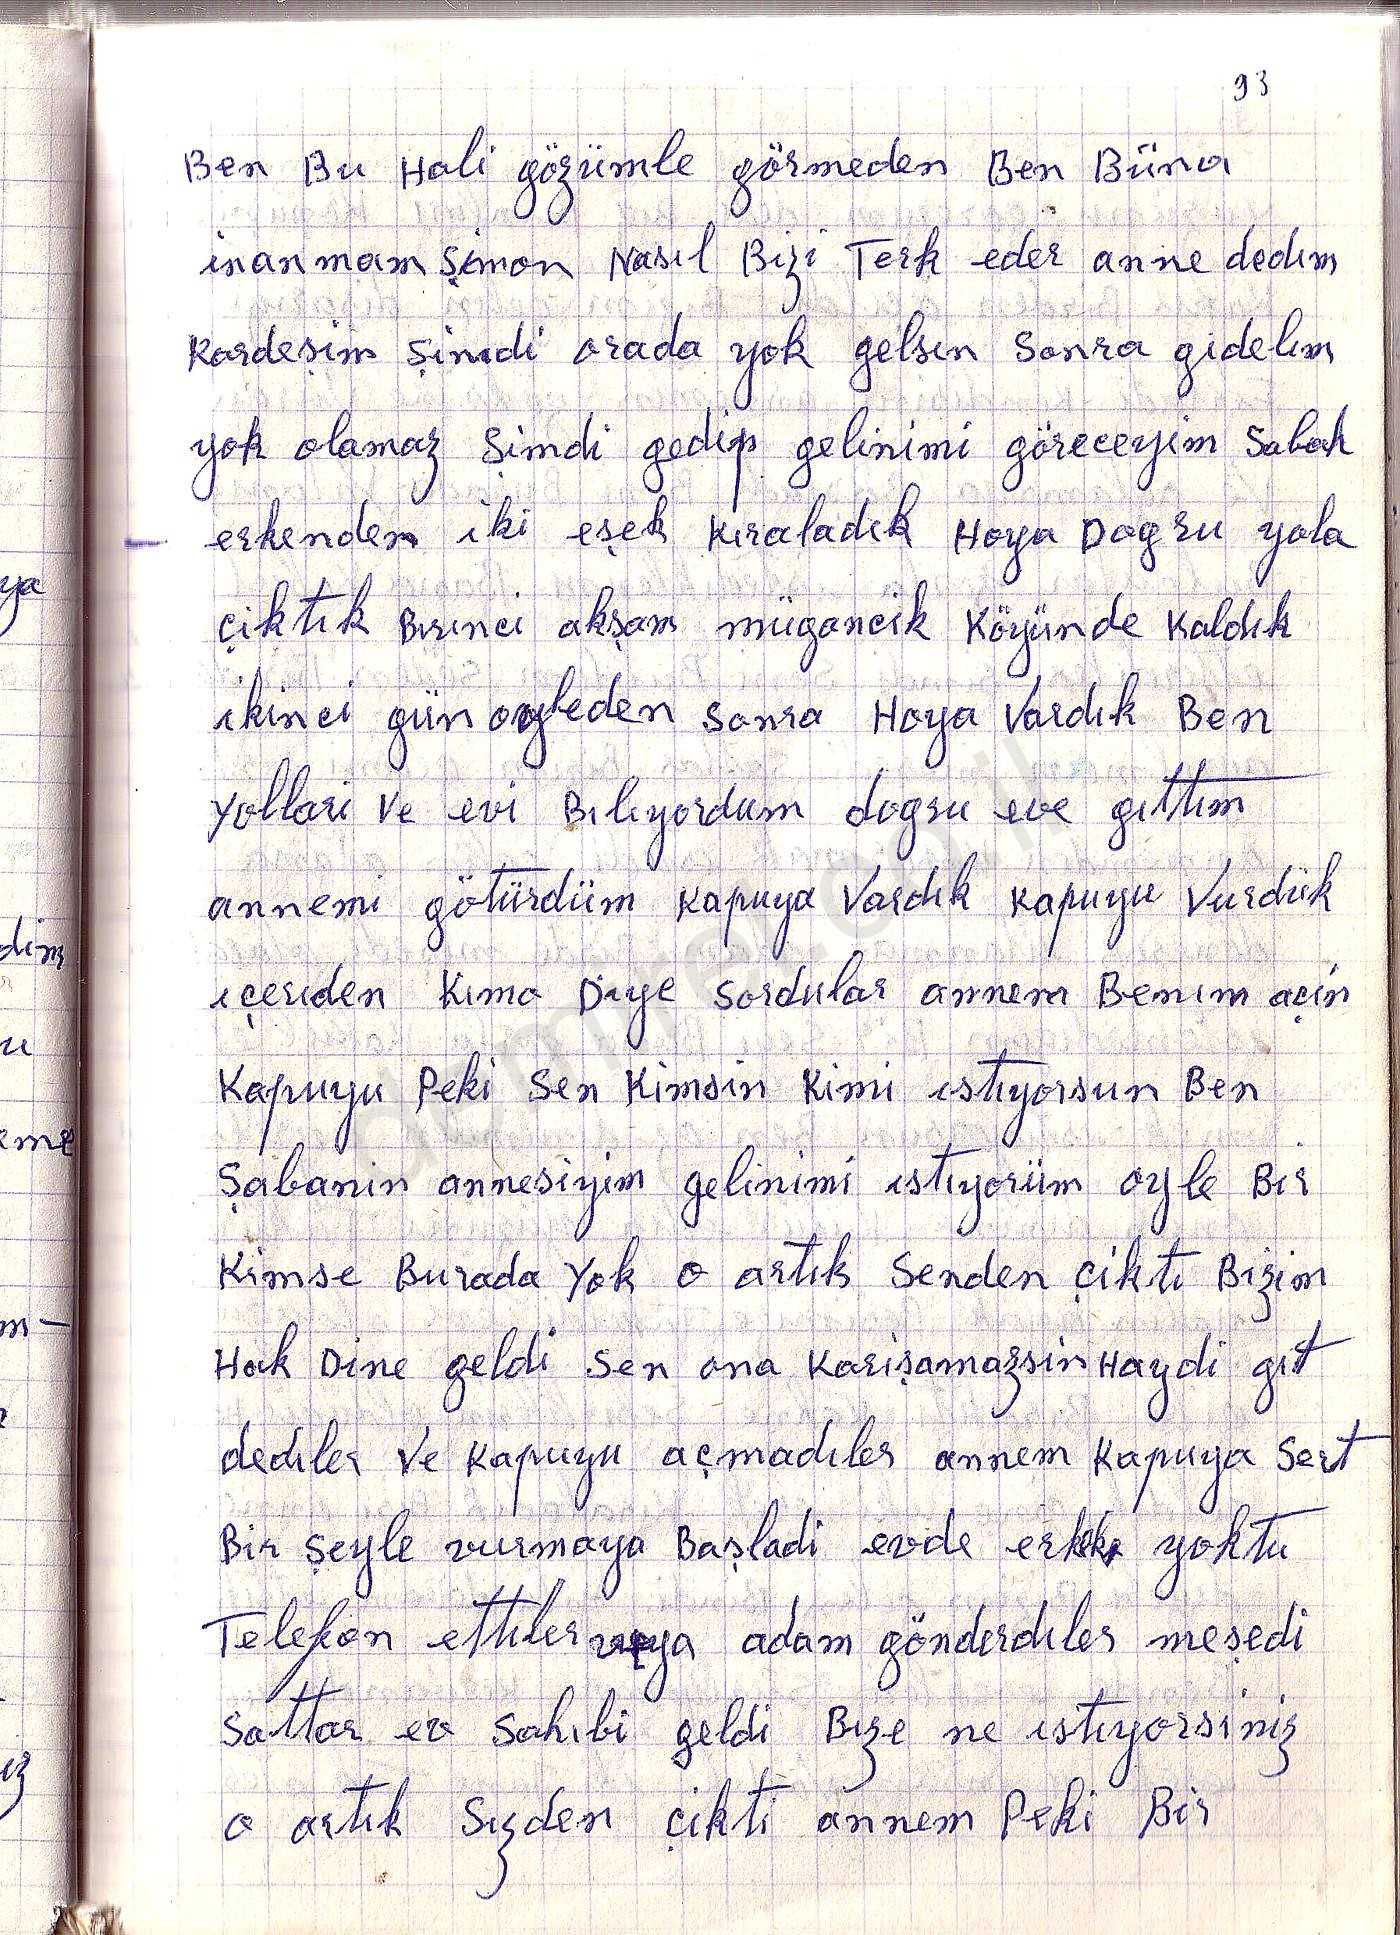 93
Ben Bu Hali gözümle görmeden Ben Büna
inanmam Şimon Nasıl Bizi Terk eder anne dedım
Kardeşim Şimdi orada yok gelsın Sonra gidelım
yok olamaz Şimdi gedip gelinimi göreceyim Sabah
erkenden iki eşek Kıraladık Hoya Dogru yola
çiktık Bırınci akşam mügancik Köyünde Kaldık
ikinci gün ogleden Sonra Hoya Vardık Ben
Yollari Ve evi Bılıyordum dogru eve gıttım
annemi götürdüm Kapuya Vardık Kapuyu Vurdük
ıçerıden Kımo Diye Sordular annem Benım açin
Kapuyu Peki Sen Kimsin Kimi ıstıyorsun Ben
Şabanin annesiyim gelinimi ıstıyorüm oyle Bır
Kimse Burada Yok o artık Senden çiktı Bizim
Hak Dine geldi Sen ona Karişamazsin Haydi gıt
dedıler Ve Kapuyu açmadıler annem Kapuya Sert
Bir Şeyle vurmaya Başladi evde erkek yoktu
Telefon ettıler veya adam gönderdıler meşedi
Sattar ev Sahıbi geldi Bıze ne ıstıyorsiniz
o artık Sızden çikti annem Peki Bir
ya
dim
u
eme
m-
iz